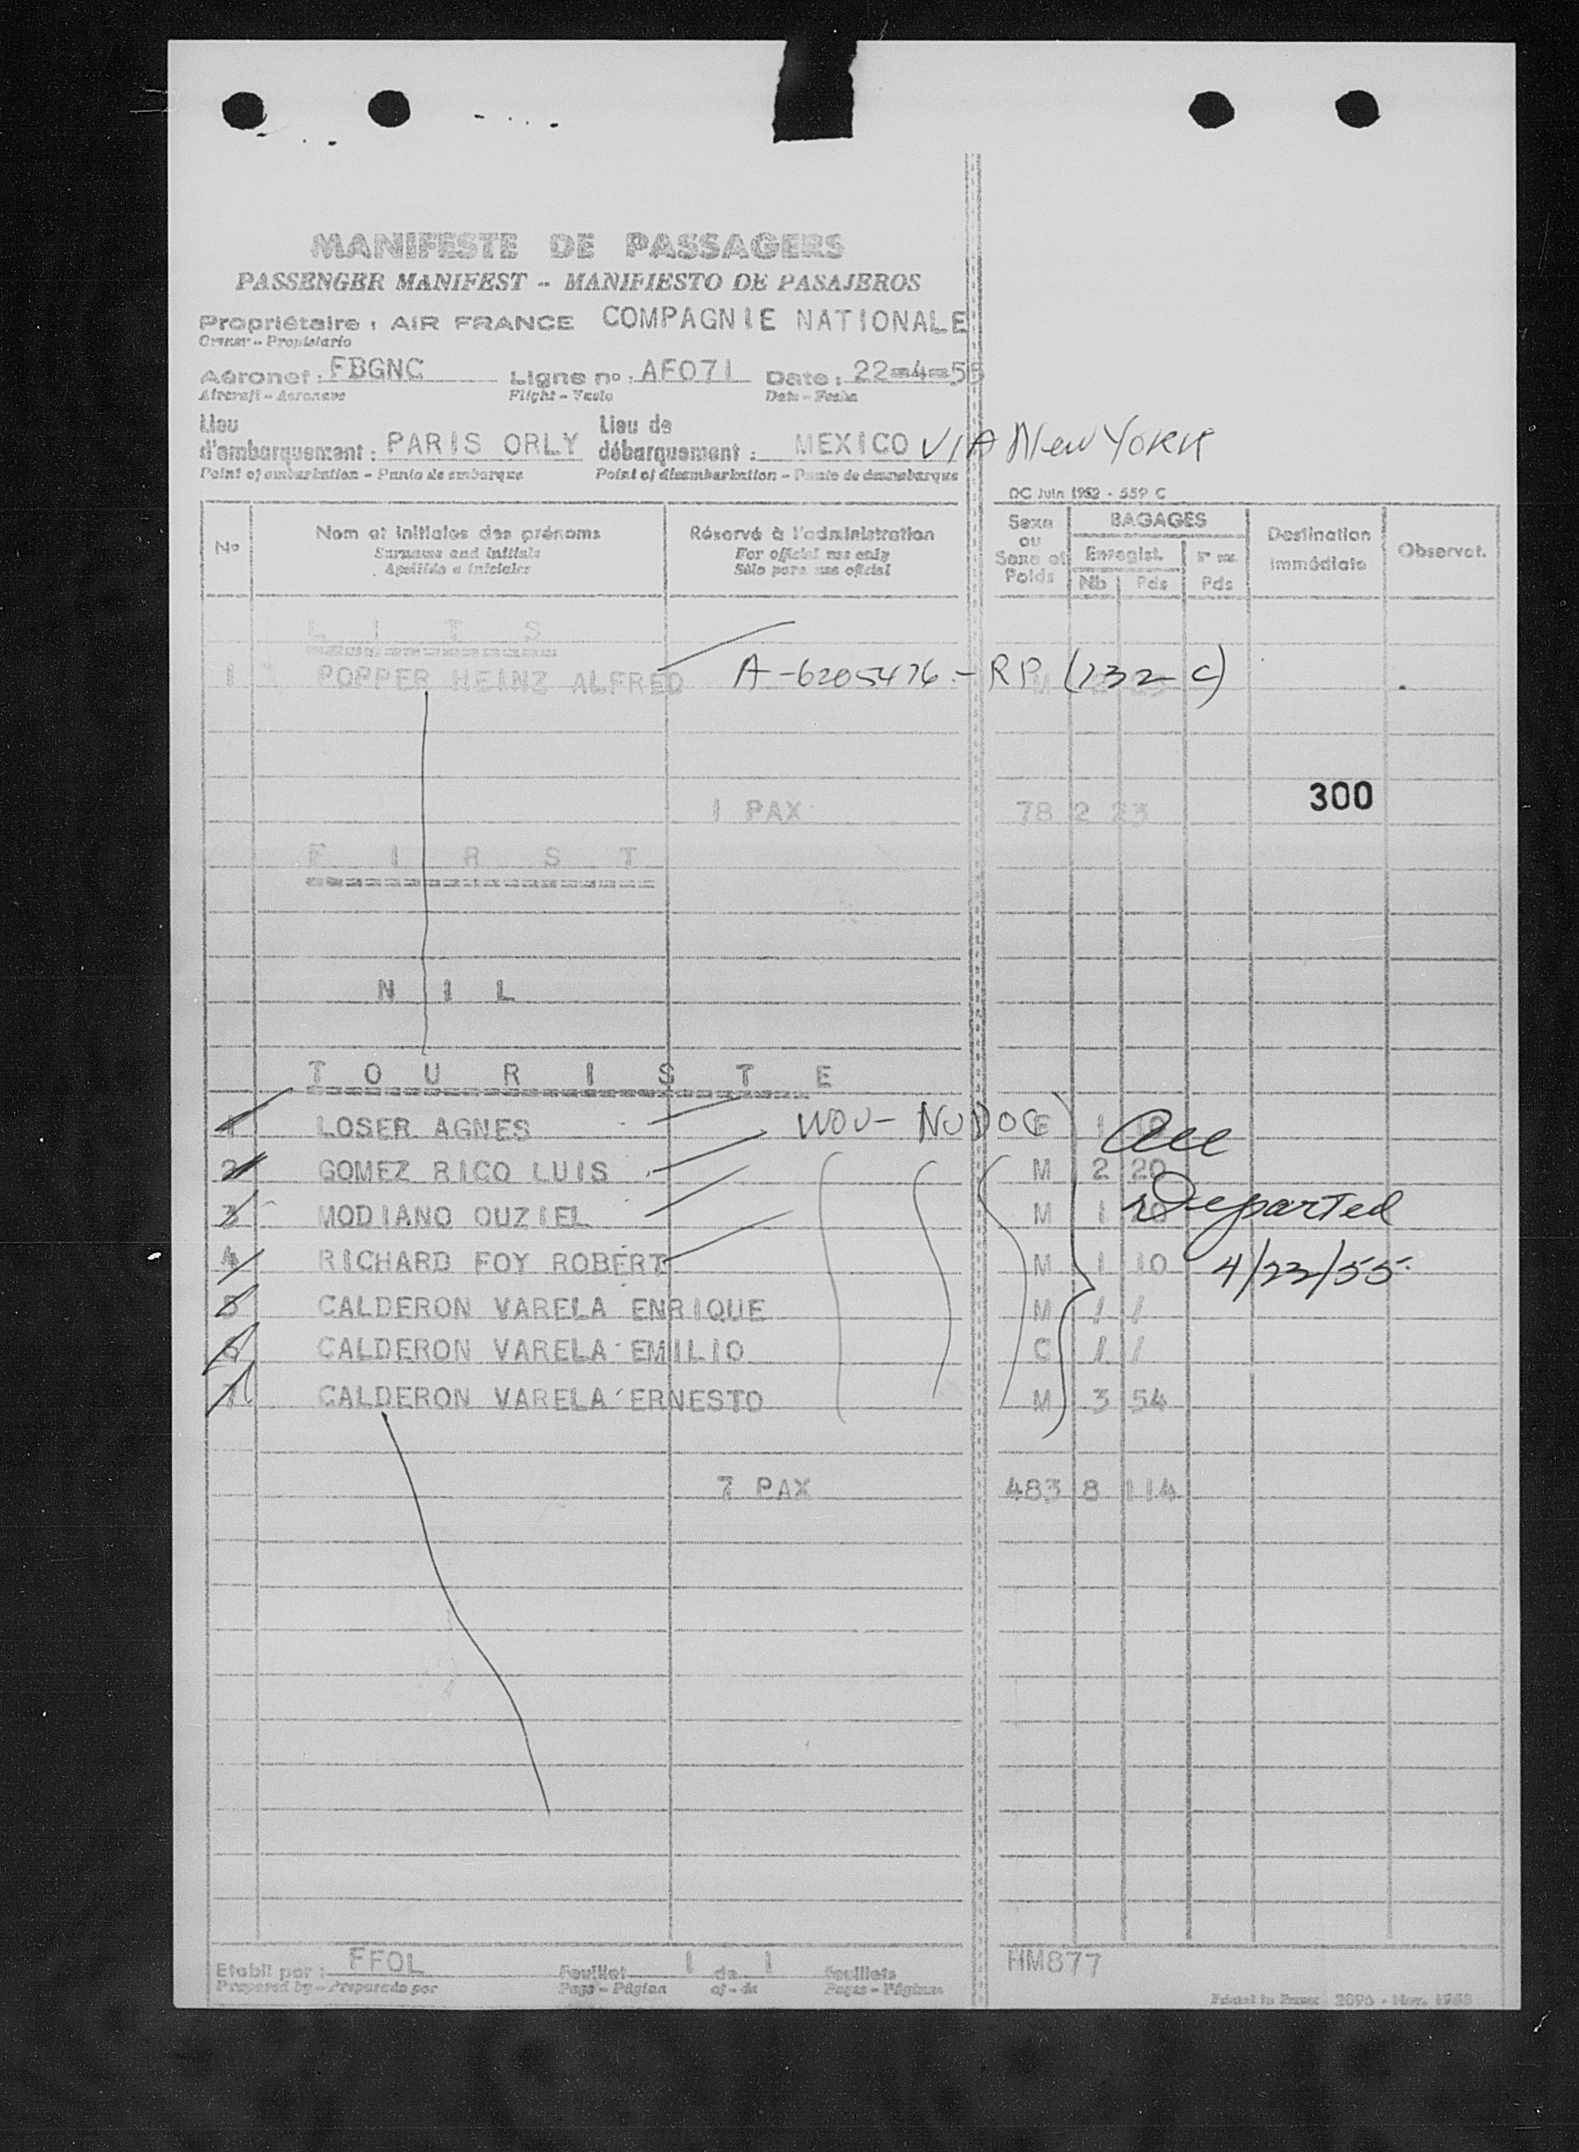 MANIFESTE DE PASSAGERS
PASSENGER MANIFEST - MANIFIESTO DE PASAJEROS
Propriétaire : AIR FRANCE COMPAGNIE NATIONALE
Owner - Propietario
Aéronef : FBGNC Ligne no : AF071 Date : 22-4-55
Aircraft - Aeronave Flight - Vuelo Date - Fecha
Lieu d'embarquement : PARIS ORLY Lieu de débarquement : MEXICO VIA New YORK
Point of embarkation - Punto de embarque Point of disembarkation - Punto de desembarque
DC Juin 1952 - 559 C
No Nom et initiales des prénoms Réservé à l'administration Sexe ou Sexe et Poids BAGAGES Destination immédiate Observat.
Surname and initials For official use only Enregist.
Apellido e iniciales Sólo para uso oficial Nb Pds Pds
L I T S
1 POPPER HEINZ ALFRED A-6205476 - RP (232 C) M
1 PAX 78 2 23
300
F I R S T
N I L
T O U R I S T E
1 LOSER AGNES WOV - NO DOC F 1 All
2 GOMEZ RICO LUIS M 2 20
3 MODIANO OUZIEL M 1 10 Departed
4 RICHARD FOY ROBERT M 1 10 4/23/55.
5 CALDERON VARELA ENRIQUE M / /
6 CALDERON VARELA EMILIO C / /
7 CALDERON VARELA ERNESTO M 3 54
7 PAX 483 8 114
Etabli par : FFOL Feuillet 1 de 1 feuillets HM877
Prepared by - Preparado por Page - Página of - de Pages - Páginas
Printed in France